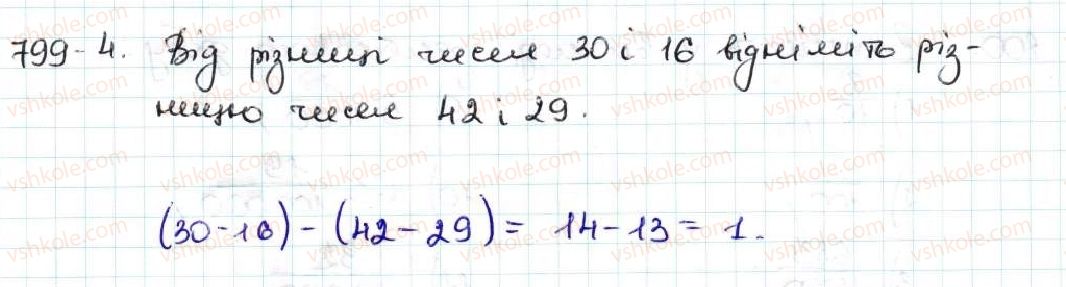 799-4. Від різниці чисел 30 і 16 відніміть різ-
ницю чисел 42 і 29.
(30-16) - (42-29) = 14-13 = 1.